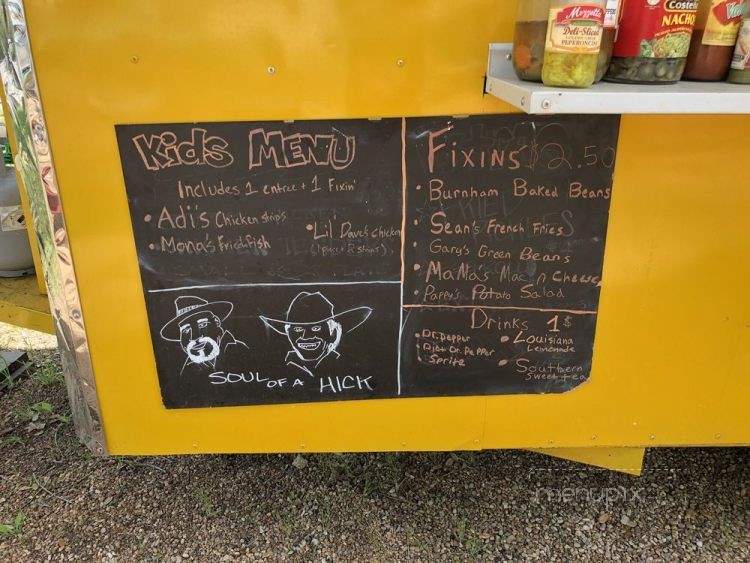 Kids MENU
Includes 1 entree + 1 Fixin'
• Adi's Chicken strips
• Mona's Fried fish
• Lil Dave's chicken
SOUL OF A HICK
FIXINS $2.50
• Burnham Baked Beans
• Sean's French Fries
• Gary's Green Beans
• MaMa's Mac n Cheese
• Pappy's Potato Salad
Drinks 1$
• Dr. Pepper
• Diet Dr. Pepper
• Sprite
• Louisiana
Lemonade
• Southern
Sweet tea
Mezzetta
Deli-Sliced
PEPERONCINI
Costeña
NACHO
menupix